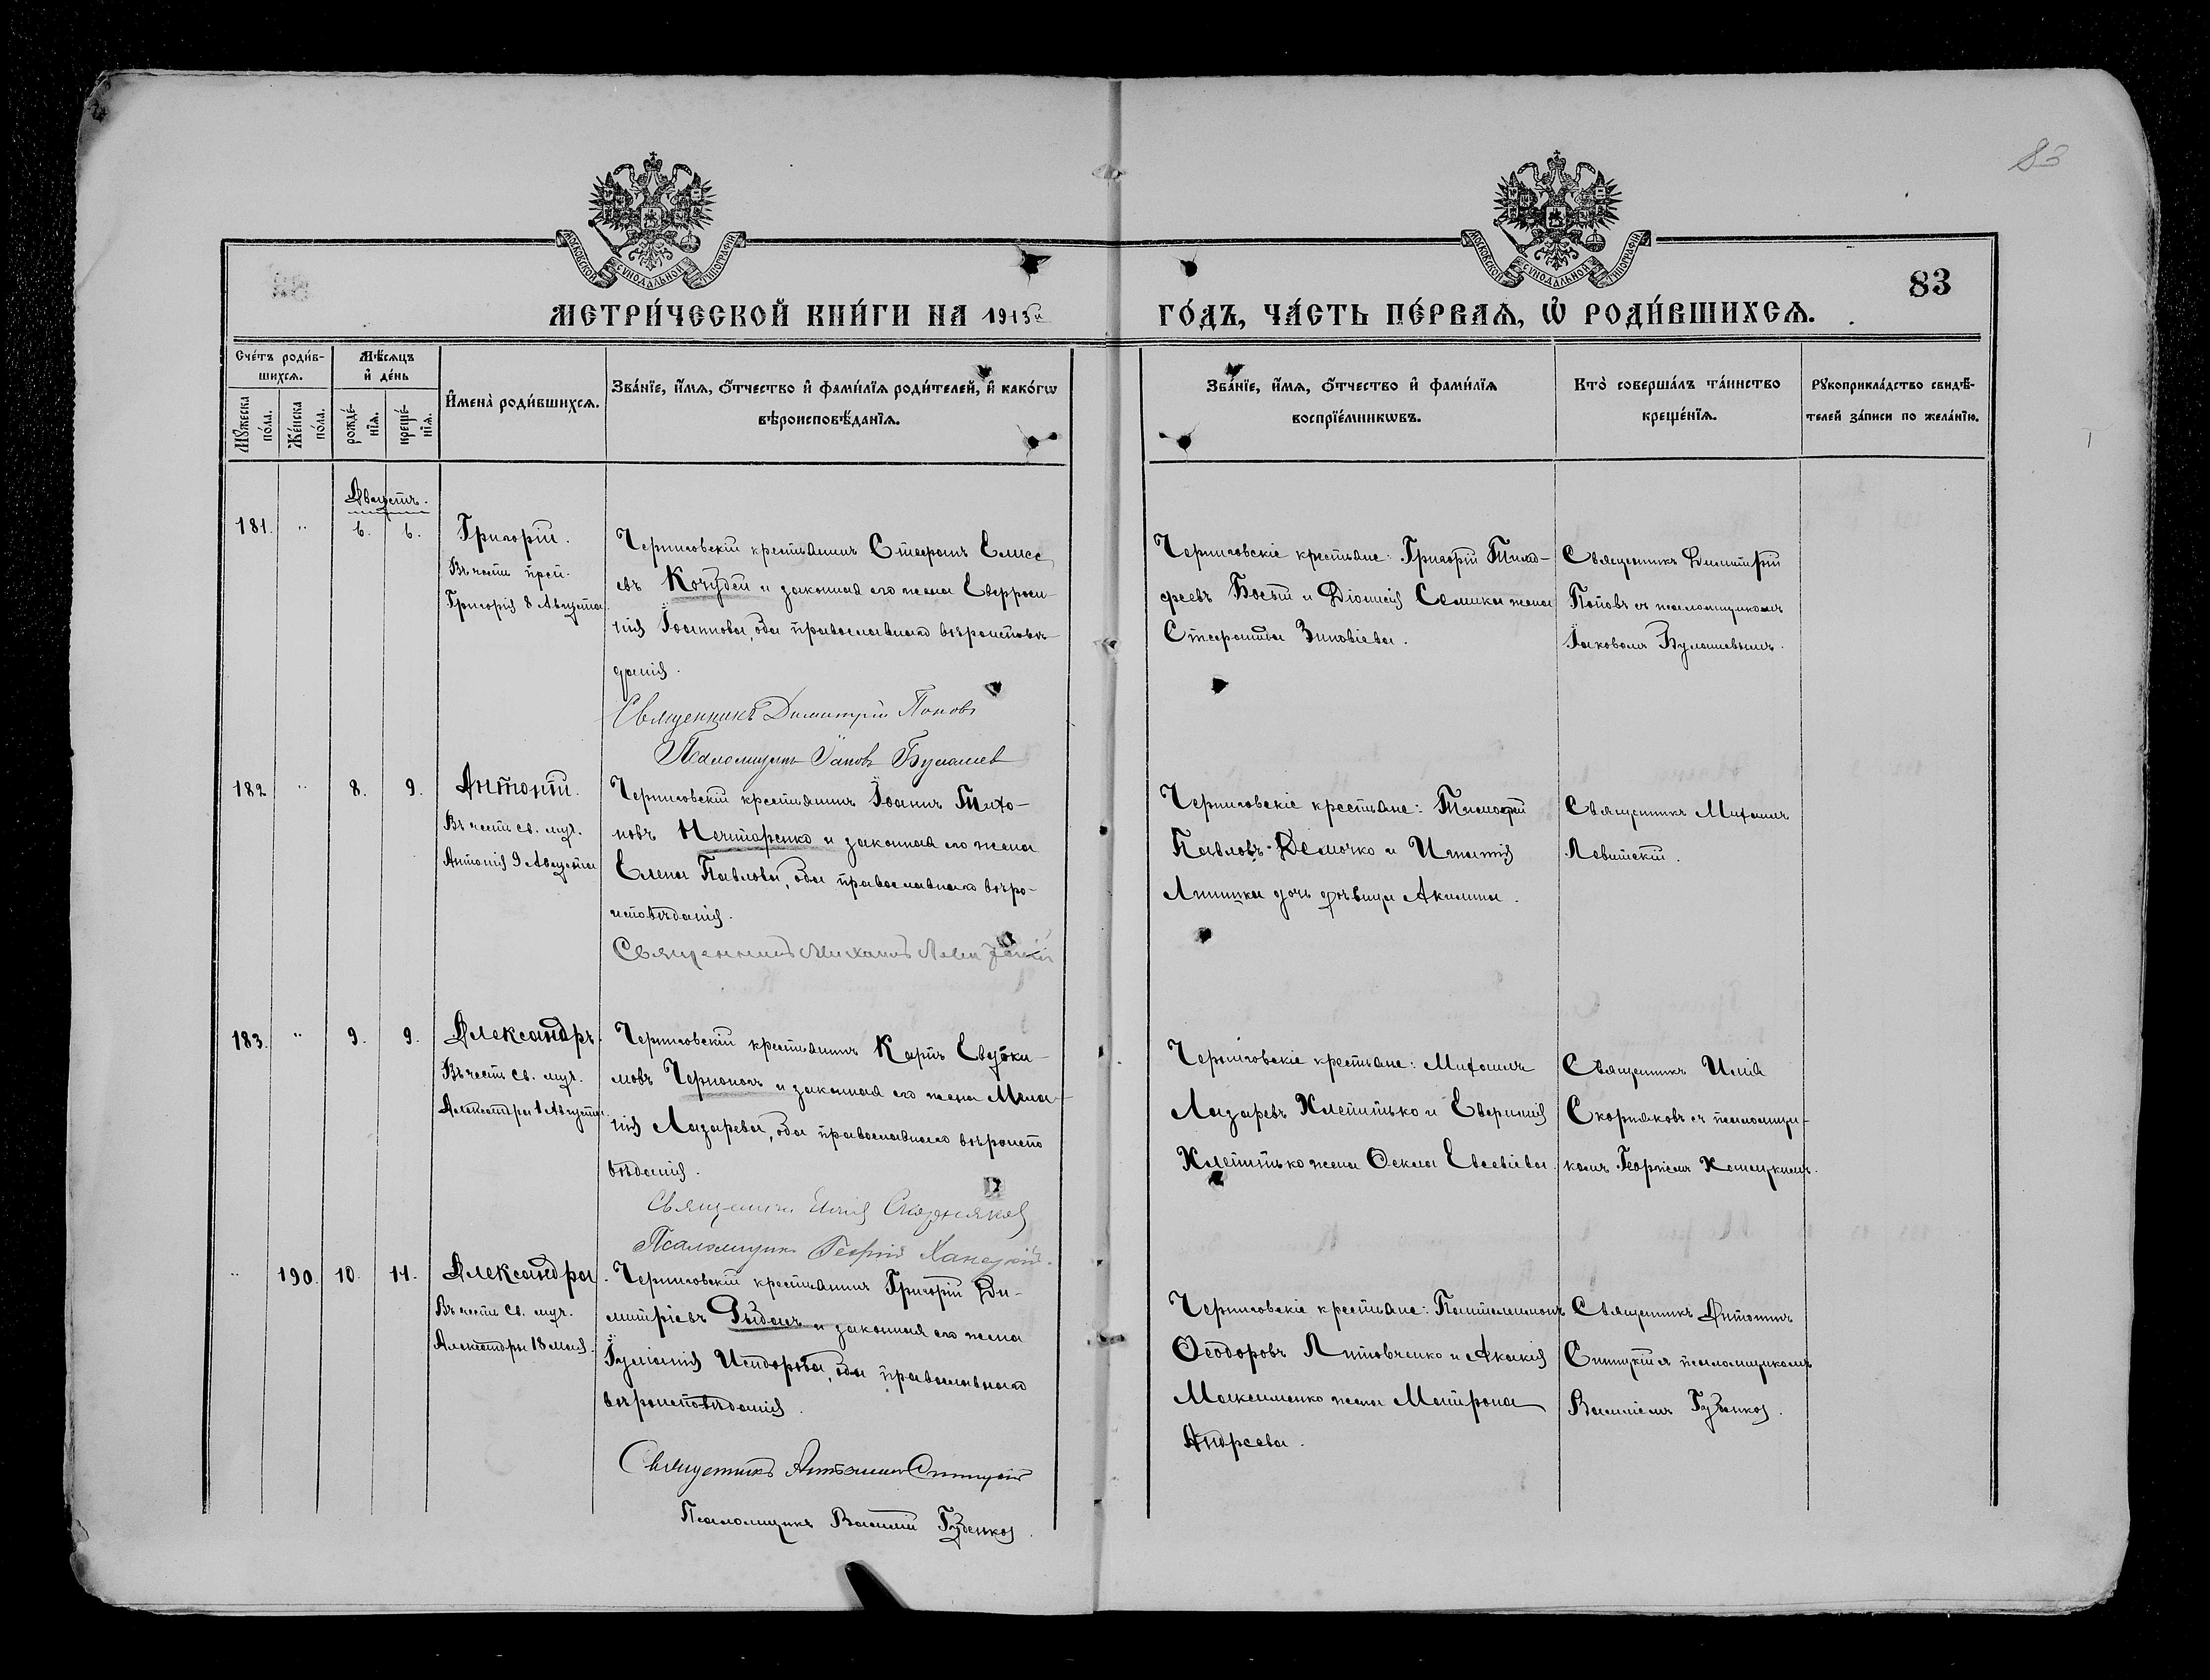 83
МОСКОВСКОЙ СѴНОДАЛЬНОЙ ТИПОГРАФІИ
МОСКОВСКОЙ СѴНОДАЛЬНОЙ ТИПОГРАФІИ
83
МЕТРИ́ЧЕСКОЙ КНИ́ГИ НА 1913й ГО́ДЪ, ЧА́СТЬ ПЕ́РВАѦ, Ѡ҆ РОДИ́ВШИХСѦ.
Сче́тъ роди́в-
шихсѧ.
Мꙋ́жеска
по́ла.
Же́нска
по́ла.
Мѣ́сѧцъ
и҆ де́нь
рожде́-
нїѧ.
креще́-
нїѧ.
И҆мена̀ роди́вшихсѧ.
Зва́нїе, и҆́мѧ, ѻ҆́тчество и҆ фами́лїѧ роди́телей, и҆ како́гѡ
вѣроисповѣ́данїѧ.
Зва́нїе, и҆́мѧ, ѻ҆́тчество и҆ фами́лїѧ
воспрїе́мникѡвъ.
Кто̀ соверша́лъ та́инство
креще́нїѧ.
Рꙋкоприкла́дство свидѣ́-
телей за́писи по жела́нїю.
Августъ.
181. " 6. 6.
Григорій.
Въ честь преп.
Григорія 8 Августа.
Черниговскій крестьянинъ Стефанъ Елисе
евъ Кочубей и законная его жена Евфроси-
нія Іоаннова, оба православнаго вѣроисповѣ-
данія.
Священникъ Димитрій Поповъ
Псаломщикъ Іаковъ
Черниговскіе крестьяне: Григорій Тимо-
феевъ Босый и Діонисія Семика жена
Стефанида Зиновіева.
Священникъ Димитрій
Поповъ съ псаломщикомъ
Іаковомъ
182. " 8. 9.
Антоній.
Въ честь св. муч.
Антонія 9 Августа
Черниговскій крестьянинъ Іоаннъ Тихо-
новъ Нечитаренко и законная его жена
Елена Павлова, оба православнаго вѣро-
исповѣданія.
Священникъ Михаилъ Левитскій
Черниговскіе крестьяне: Тимофей
Павловъ Демочко и Игнатія
Липицка дочь дѣвица Акилина.
Священникъ Михаилъ
Левитскій.
183. " 9. 9.
Александръ.
Въ честь св. муч.
Александра 1 Августа
Черниговскій крестьянинъ Карпъ Евдоки-
мовъ Чернопопъ и законная его жена Мела-
нія Лазарева, оба православнаго вѣроиспо
вѣданія.
Священникъ Илія Скорняковъ
Псаломщикъ Георгій
Черниговскіе крестьяне: Михаилъ
Лазаревъ Хлепитько и Евфимія
Хлепитько жена Ѳекла Евсевіева.
Священникъ Илія
Скорняковъ съ псаломщи-
комъ Георгіемъ
" 190. 10. 11.
Александра.
Въ честь св. муч.
Александры 18 Мая.
Черниговскій крестьянинъ Григорій Ди-
митріевъ Рыбалъ и законная его жена
Іуліанія Исидорова, оба православнаго
вѣроисповѣданія.
Священникъ Антонинъ Спицкій
Псаломщикъ Василій Губенко
Черниговскіе крестьяне: Пантелеимонъ
Ѳеодоровъ Литовченко и Акакія
Максименко жена Матрона
Андреева.
Священникъ Антонинъ
Спицкій съ псаломщикомъ
Василіемъ Губенко.